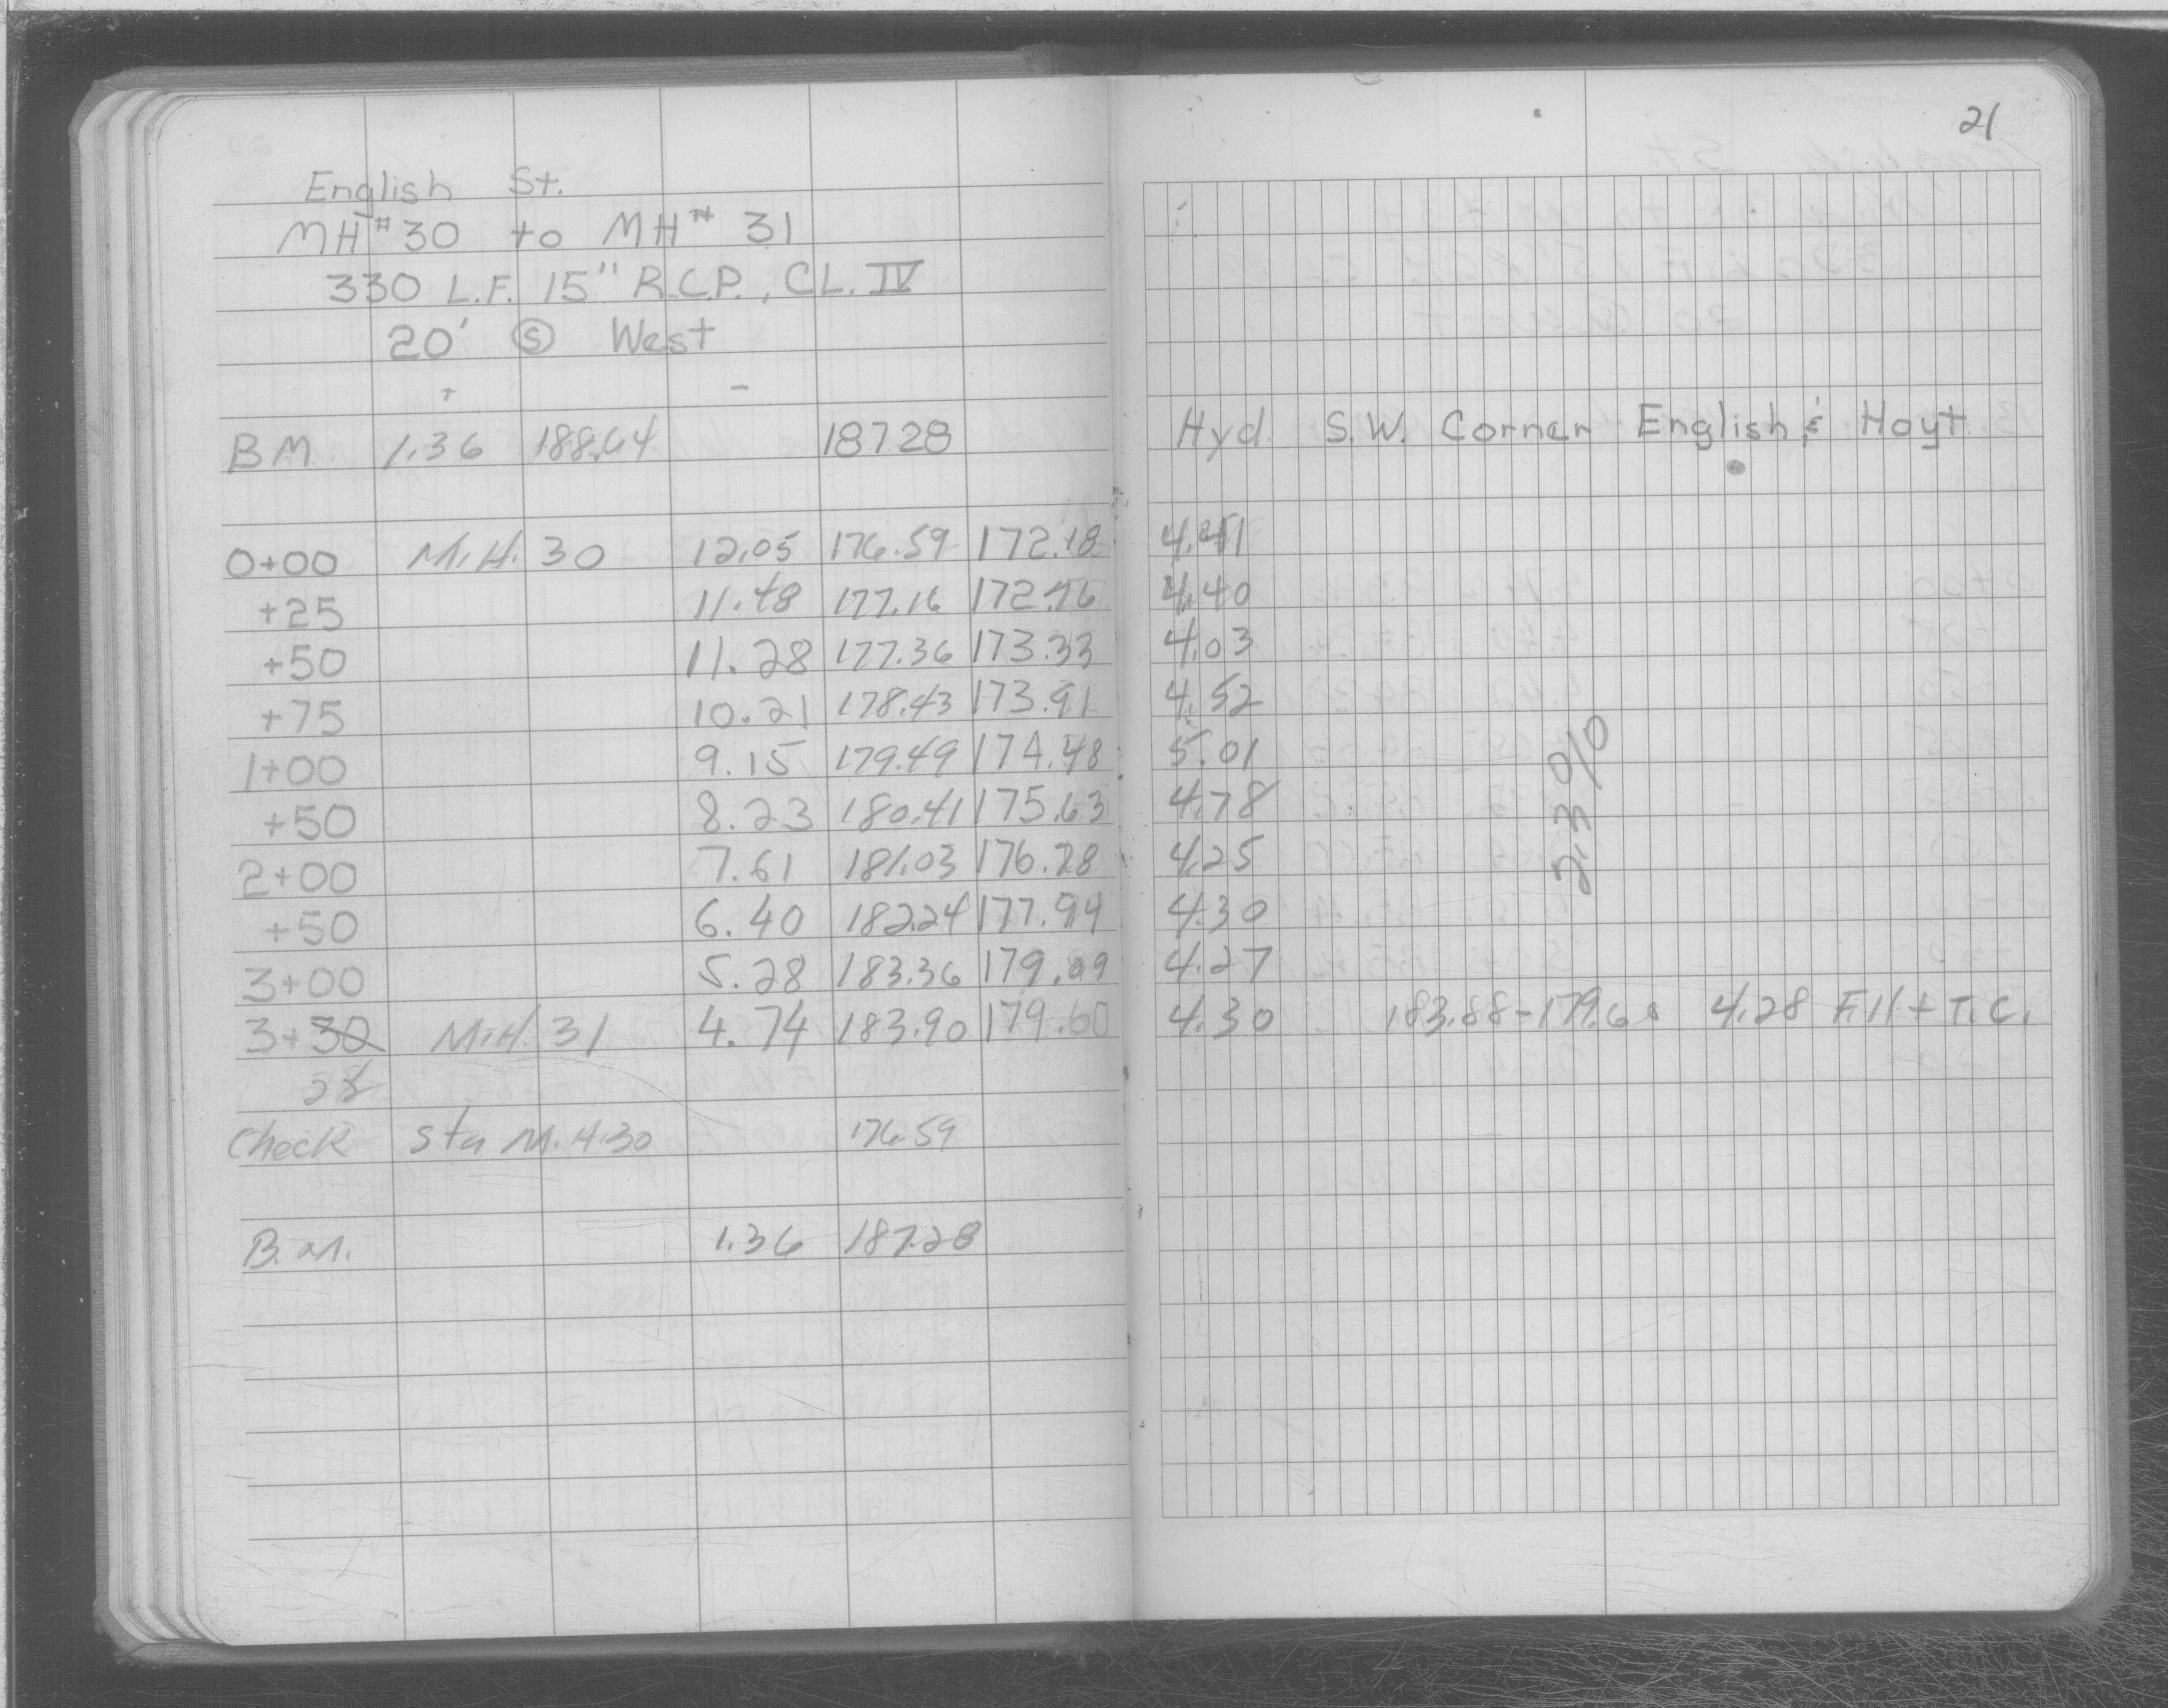 21
English St.
MH#30 to MH# 31
330 L.F. 15" R.C.P., CL. IV
20' Ⓢ West
+ -
BM 1.36 188.64 187.28 Hyd. S.W. Corner English & Hoyt
0+00 M.H. 30 12.05 176.59 172.18 4.41
+25 11.48 177.16 172.76 4.40
+50 11.28 177.36 173.33 4.03
+75 10.21 178.43 173.91 4.52
1+00 9.15 179.49 174.48 5.01
+50 8.23 180.41 175.63 4.78
2+00 7.61 181.03 176.78 4.25
+50 6.40 182.24 177.94 4.30
3+00 5.28 183.36 179.09 4.27
3+30 M.H. 31 4.74 183.90 179.60 4.30 183.88-179.60 4.28 Fill + T.C.
2.3%
Check Sta M.H.30 176.59
B.M. 1.36 187.28